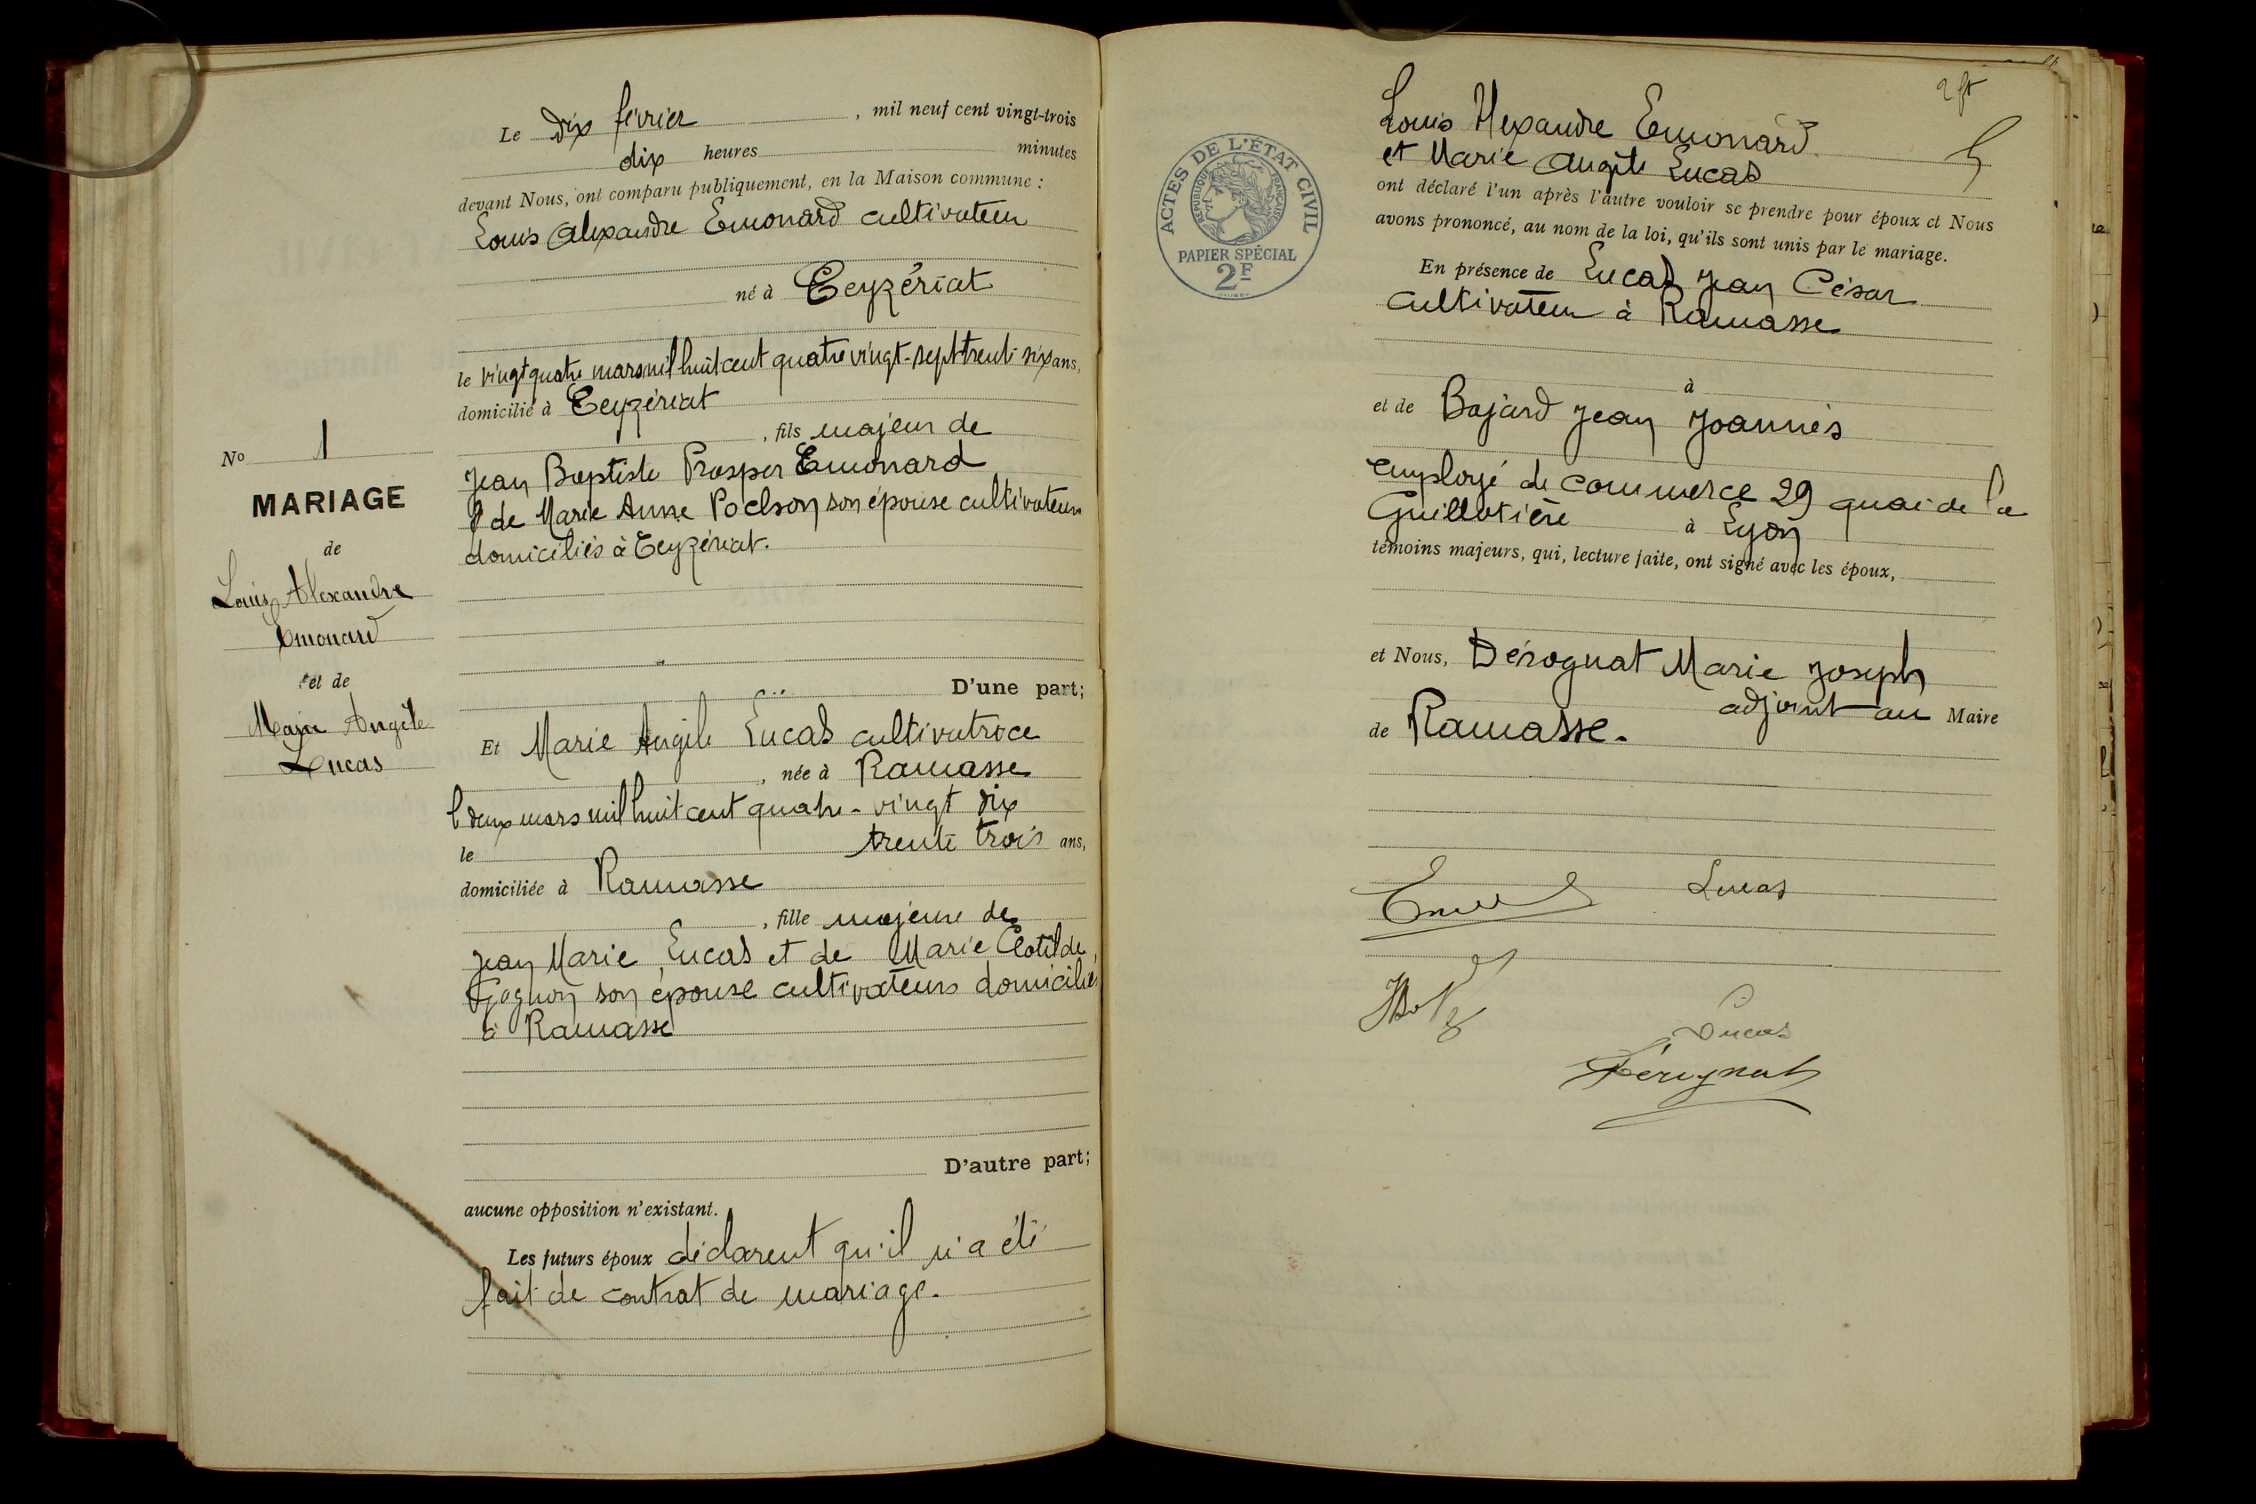 Le dix février, mil neuf cent vingt-trois
dix heures minutes
devant Nous, ont comparu publiquement, en la Maison commune :
Louis Alexandre Emonard cultivateur
né à Ceyzériat
le vingt quatre mars mil huit cent quatre vingt-sept trente-six ans,
domicilié à Ceyzériat
, fils majeur de
Jean Baptiste Prosper Emonard
& de Marie Anne son épouse cultivateurs
domiciliés à Ceyzériat.
D'une part;
Et Marie Angèle Lucas cultivatrice
, née à Ramasse
le deux mars mil huit cent quatre-vingt dix
le trente trois ans,
domiciliée à Ramasse
, fille majeure de
Jean Marie Lucas et de Marie Clotilde
son épouse cultivateurs domiciliés
à Ramasse
D'autre part;
aucune opposition n'existant.
Les futurs époux déclarent qu'il n'a été
fait de contrat de mariage.
No 1
MARIAGE
de
Louis Alexandre
Emonard
et de
Marie Angèle
Lucas
Louis Alexandre Emonard
et Marie Angèle Lucas
ont déclaré l'un après l'autre vouloir se prendre pour époux et Nous
avons prononcé, au nom de la loi, qu'ils sont unis par le mariage.
En présence de Lucas Jean César
cultivateur à Ramasse
à
et de Bajard Jean Joannès
employé de commerce 29 quai de la
Guillotière à Lyon
témoins majeurs, qui, lecture faite, ont signé avec les époux,
et Nous, Dérognat Marie Joseph
adjoint au Maire
de Ramasse.
Lucas
Lucas
Dérognat
ACTES DE L'ÉTAT CIVIL
RÉPUBLIQUE FRANÇAISE
PAPIER SPÉCIAL
2F